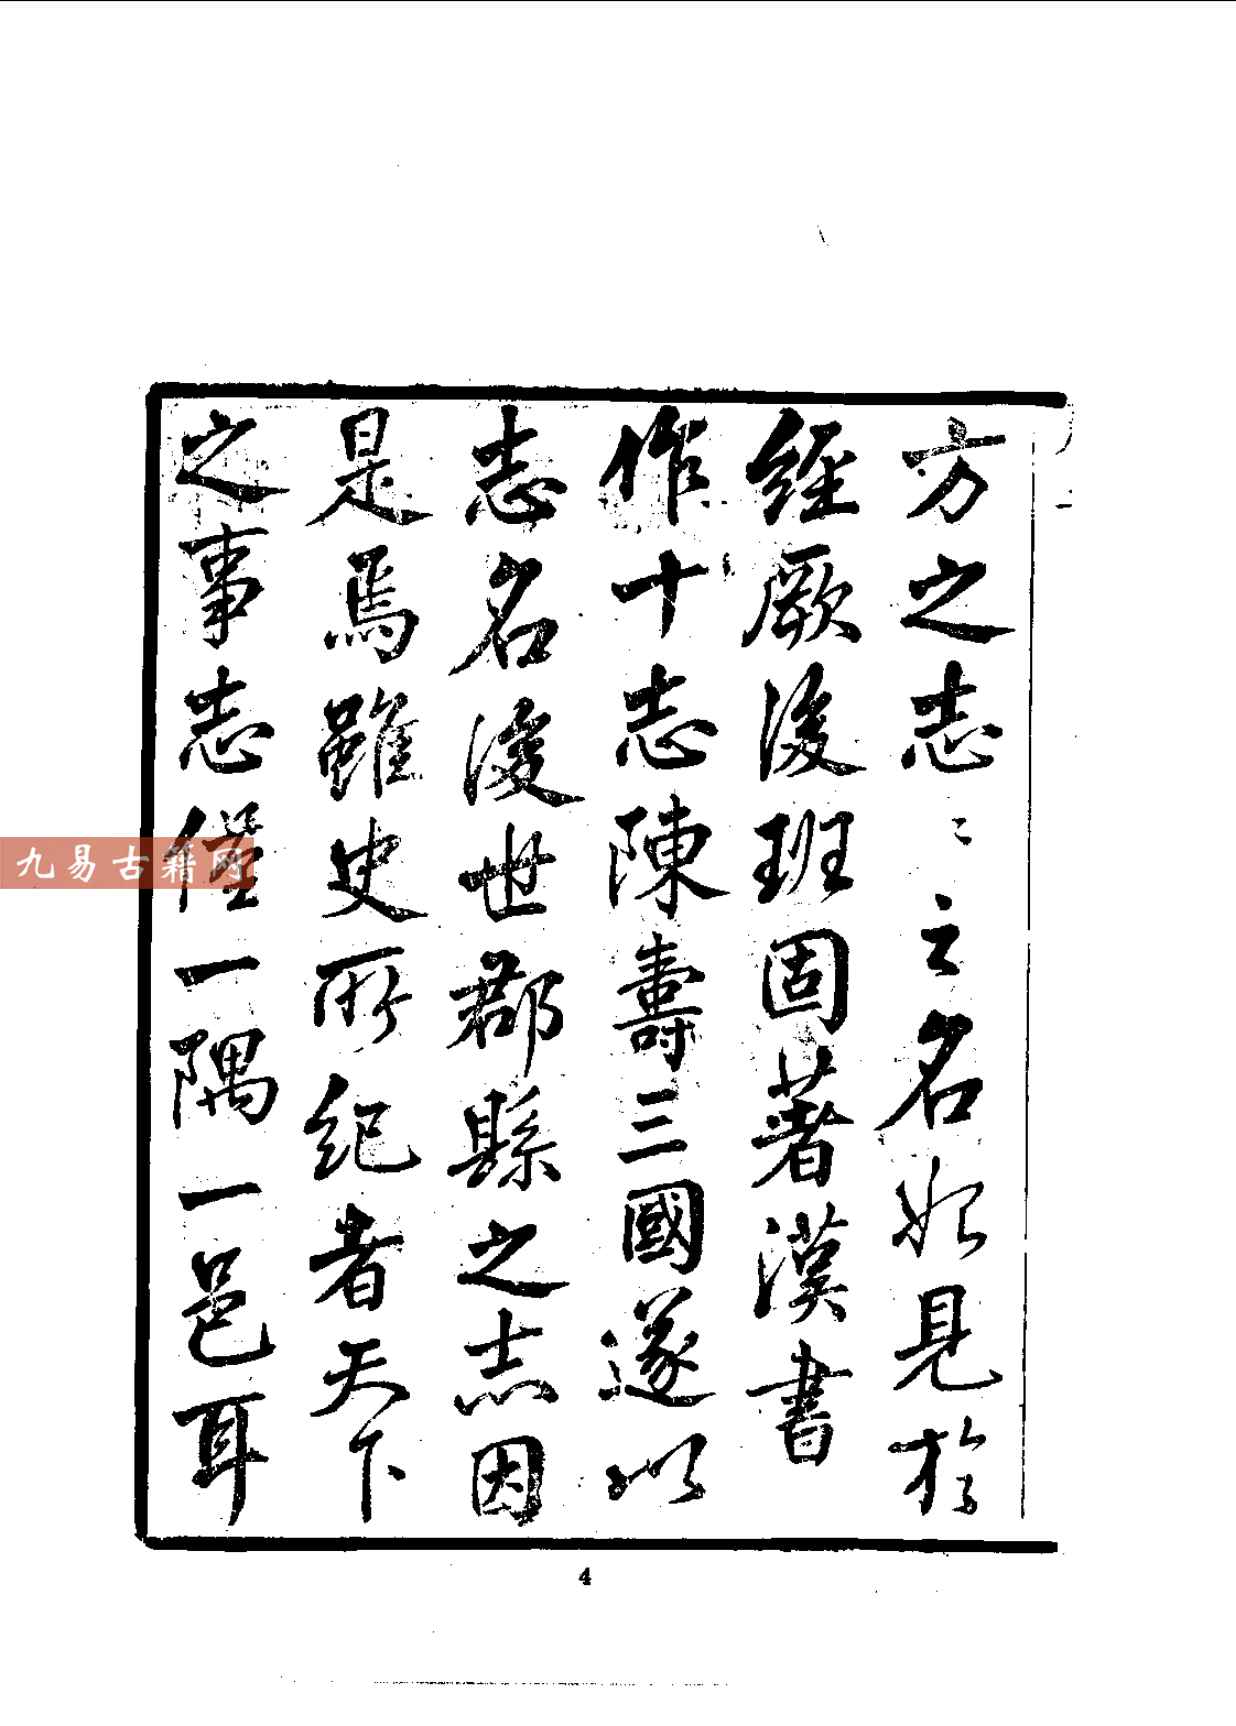 方之志〻之名始見於
經厥後班固著漢書
作十志陳壽三國遂以
志名後世郡縣之志因
是焉雖史所紀者天下
之事志僅一隅一邑耳
九易古籍网
4